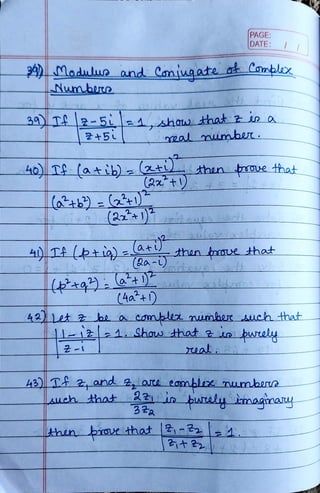 PAGE:
DATE: / /
39) Modulus and Conjugate of Complex
Numbers
39) If |z-5i / z+5i| = 1, show that z is a
real number.
40) If (a+ib) = (x+i)² / (2x²+1) then prove that
(a²+b²) = (x²+1)² / (2x²+1)²
41) If (p+iq) = (a+i)² / (2a-i) then prove that
(p²+q²) = (a²+1)² / (4a²+1)
42) Let z be a complex number such that
|1-iz / z-i| = 1. Show that z is purely
real.
43) If z₁ and z₂ are complex numbers
such that 2z₁ / 3z₂ is purely imaginary
then prove that |z₁-z₂ / z₁+z₂| = 1.